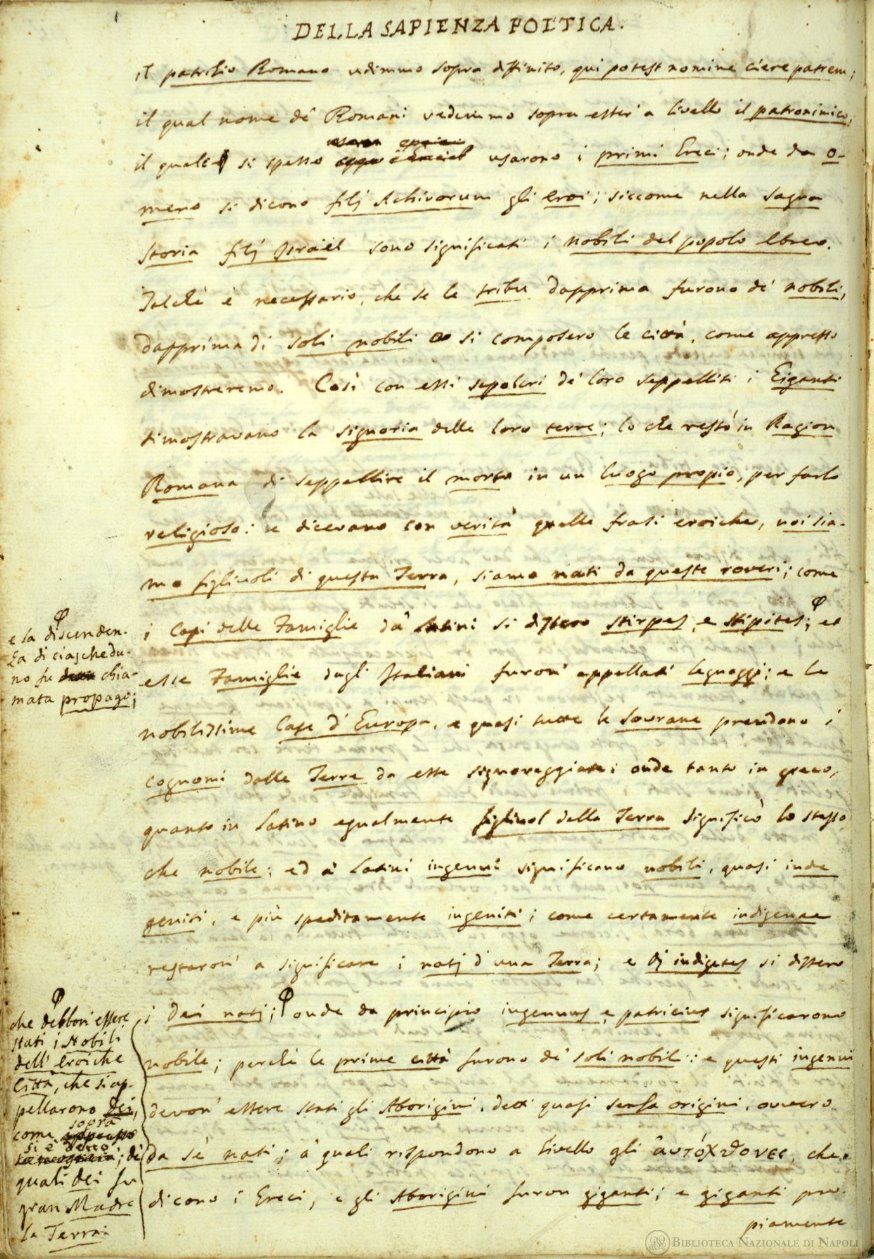 DELLA SAPIENZA POETICA.
il patrizio Romano vedimmo sopra diffinito, qui potest nomine ciere patrem;
il qual nome de' Romani vedemmo sopra esser' a livello il patronimico,
il quale si spesso usarono i primi Greci; onde da O-
mero si dicono filj Achivorum gli Eroi; siccome nella sagra
storia filj Israel sono significati i nobili del popolo Ebreo.
Talchè è necessario, che se le tribu dapprima furono de' nobili,
dapprima di soli nobili si composero le città, come appresso
dimostreremo. Così con essi sepolcri de' loro seppelliti i Giganti
dimostravano la signoria delle loro terre; lo che restò in Ragion
Romana di seppellire il morto in un luogo propio, per farlo
religioso: e dicevano con verità quelle frasi eroiche, noi sia-
mo figliuoli di questa Terra, siamo nati da queste roveri; come
i Capi delle Famiglie da' Latini si dissero stirpes, e stipites; ed
esse Famiglie dagl' Italiani furon' appellati legnaggi; e le
nobilissime Case d' Europa, e quasi tutte le Sovrane prendono i
cognomi dalle Terre da esse signoreggiate: onde tanto in greco,
quanto in Latino egualmente figliuol della Terra significò lo stesso,
che nobile; ed a' Latini ingenui significano nobili, quasi inde
geniti, e più speditamente ingeniti; come certamente indigenae
restaron' a significare i natj d' una Terra; e Dj indigetes si dissero
i Dei natj; onde da principio ingenuus, e patricius significarono
nobile; perchè le prime città furono de' soli nobili: e questi ingenui
devon' essere stati gli Aborigini, detti quasi senza origini, ovvero
da sè nati; a' quali rispondono a livello gli αυτόχθονες, che
dicono i Greci, e gli Aborigini furon giganti; e giganti pro-
piamente
e la discenden-
za di ciaschedu-
no fu chia-
mata propago;
che debbon' essere
stati i Nobili
dell' Eroiche
Città, che si ap-
pellarono Dei,
come sopra
si è detto; de'
quali dei fu
gran Madre
la Terra:
BIBLIOTECA NAZIONALE DI NAPOLI